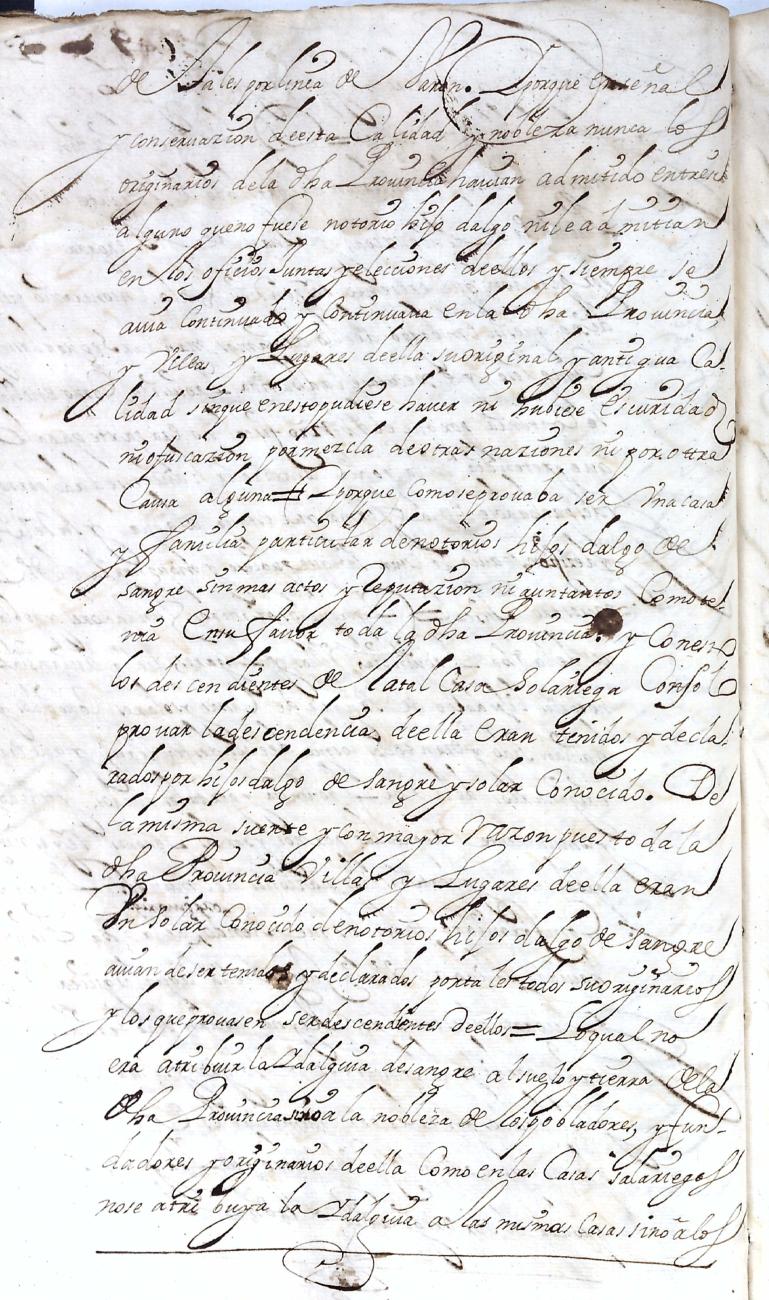 de Tales por linea de Varon. Y porque en señal
y conservazion de esta Calidad y nobleza nunca los
originarios de la dha Provincia havian admitido entre si
alguno que no fuese notorio hijo dalgo ni le admitian
en los oficios Juntas y elecciones de ellos y siempre se
avia Continuado y Continuava en la dha Provincia
y Villas y Lugares de ella su original y antigua Ca-
lidad sin que en esto pudiese haver ni hubiese escuridad
ni ofuscazion por mezcla de otras naziones ni por otra
Causa alguna = Y porque como se provaba ser Una casa
y familia particular de notorios hijos dalgo de
sangre sin mas actos y reputazion ni aun tantos Como te-
nia En su favor toda la dha Provincia. y Con esto
los descendientes de la tal Casa Solariega Con solo
provar la descendencia de ella eran tenidos y decla-
rados por hijos dalgo de sangre y solar Conocido. De
la misma suerte y con mayor razon pues toda la
dha Provincia Villas y Lugares de ella eran
Un solar Conocido de notorios hijos dalgo de sangre
avian de ser tenidos y declarados por tales todos sus originarios
y los que provasen ser descendientes de ellos = Lo qual no
era atribuir la Ydalguia de sangre al suelo y tierra de la
dha Provincia sino a la nobleza de los pobladores, y fun-
dadores y originarios de ella Como en las Casas solariegas
no se atribuya la Ydalguia a las mismas Casas sino a los